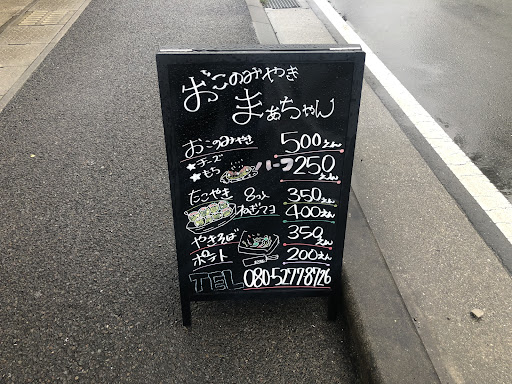 おこのみやき
まぁちゃん
おこのみやき 500えん
★チーズ ハーフ 250えん
★もち
たこやき 8つ入 350えん
ねぎマヨ 400えん
やきそば 350えん
ポテト 200えん
TEL 080-52778726